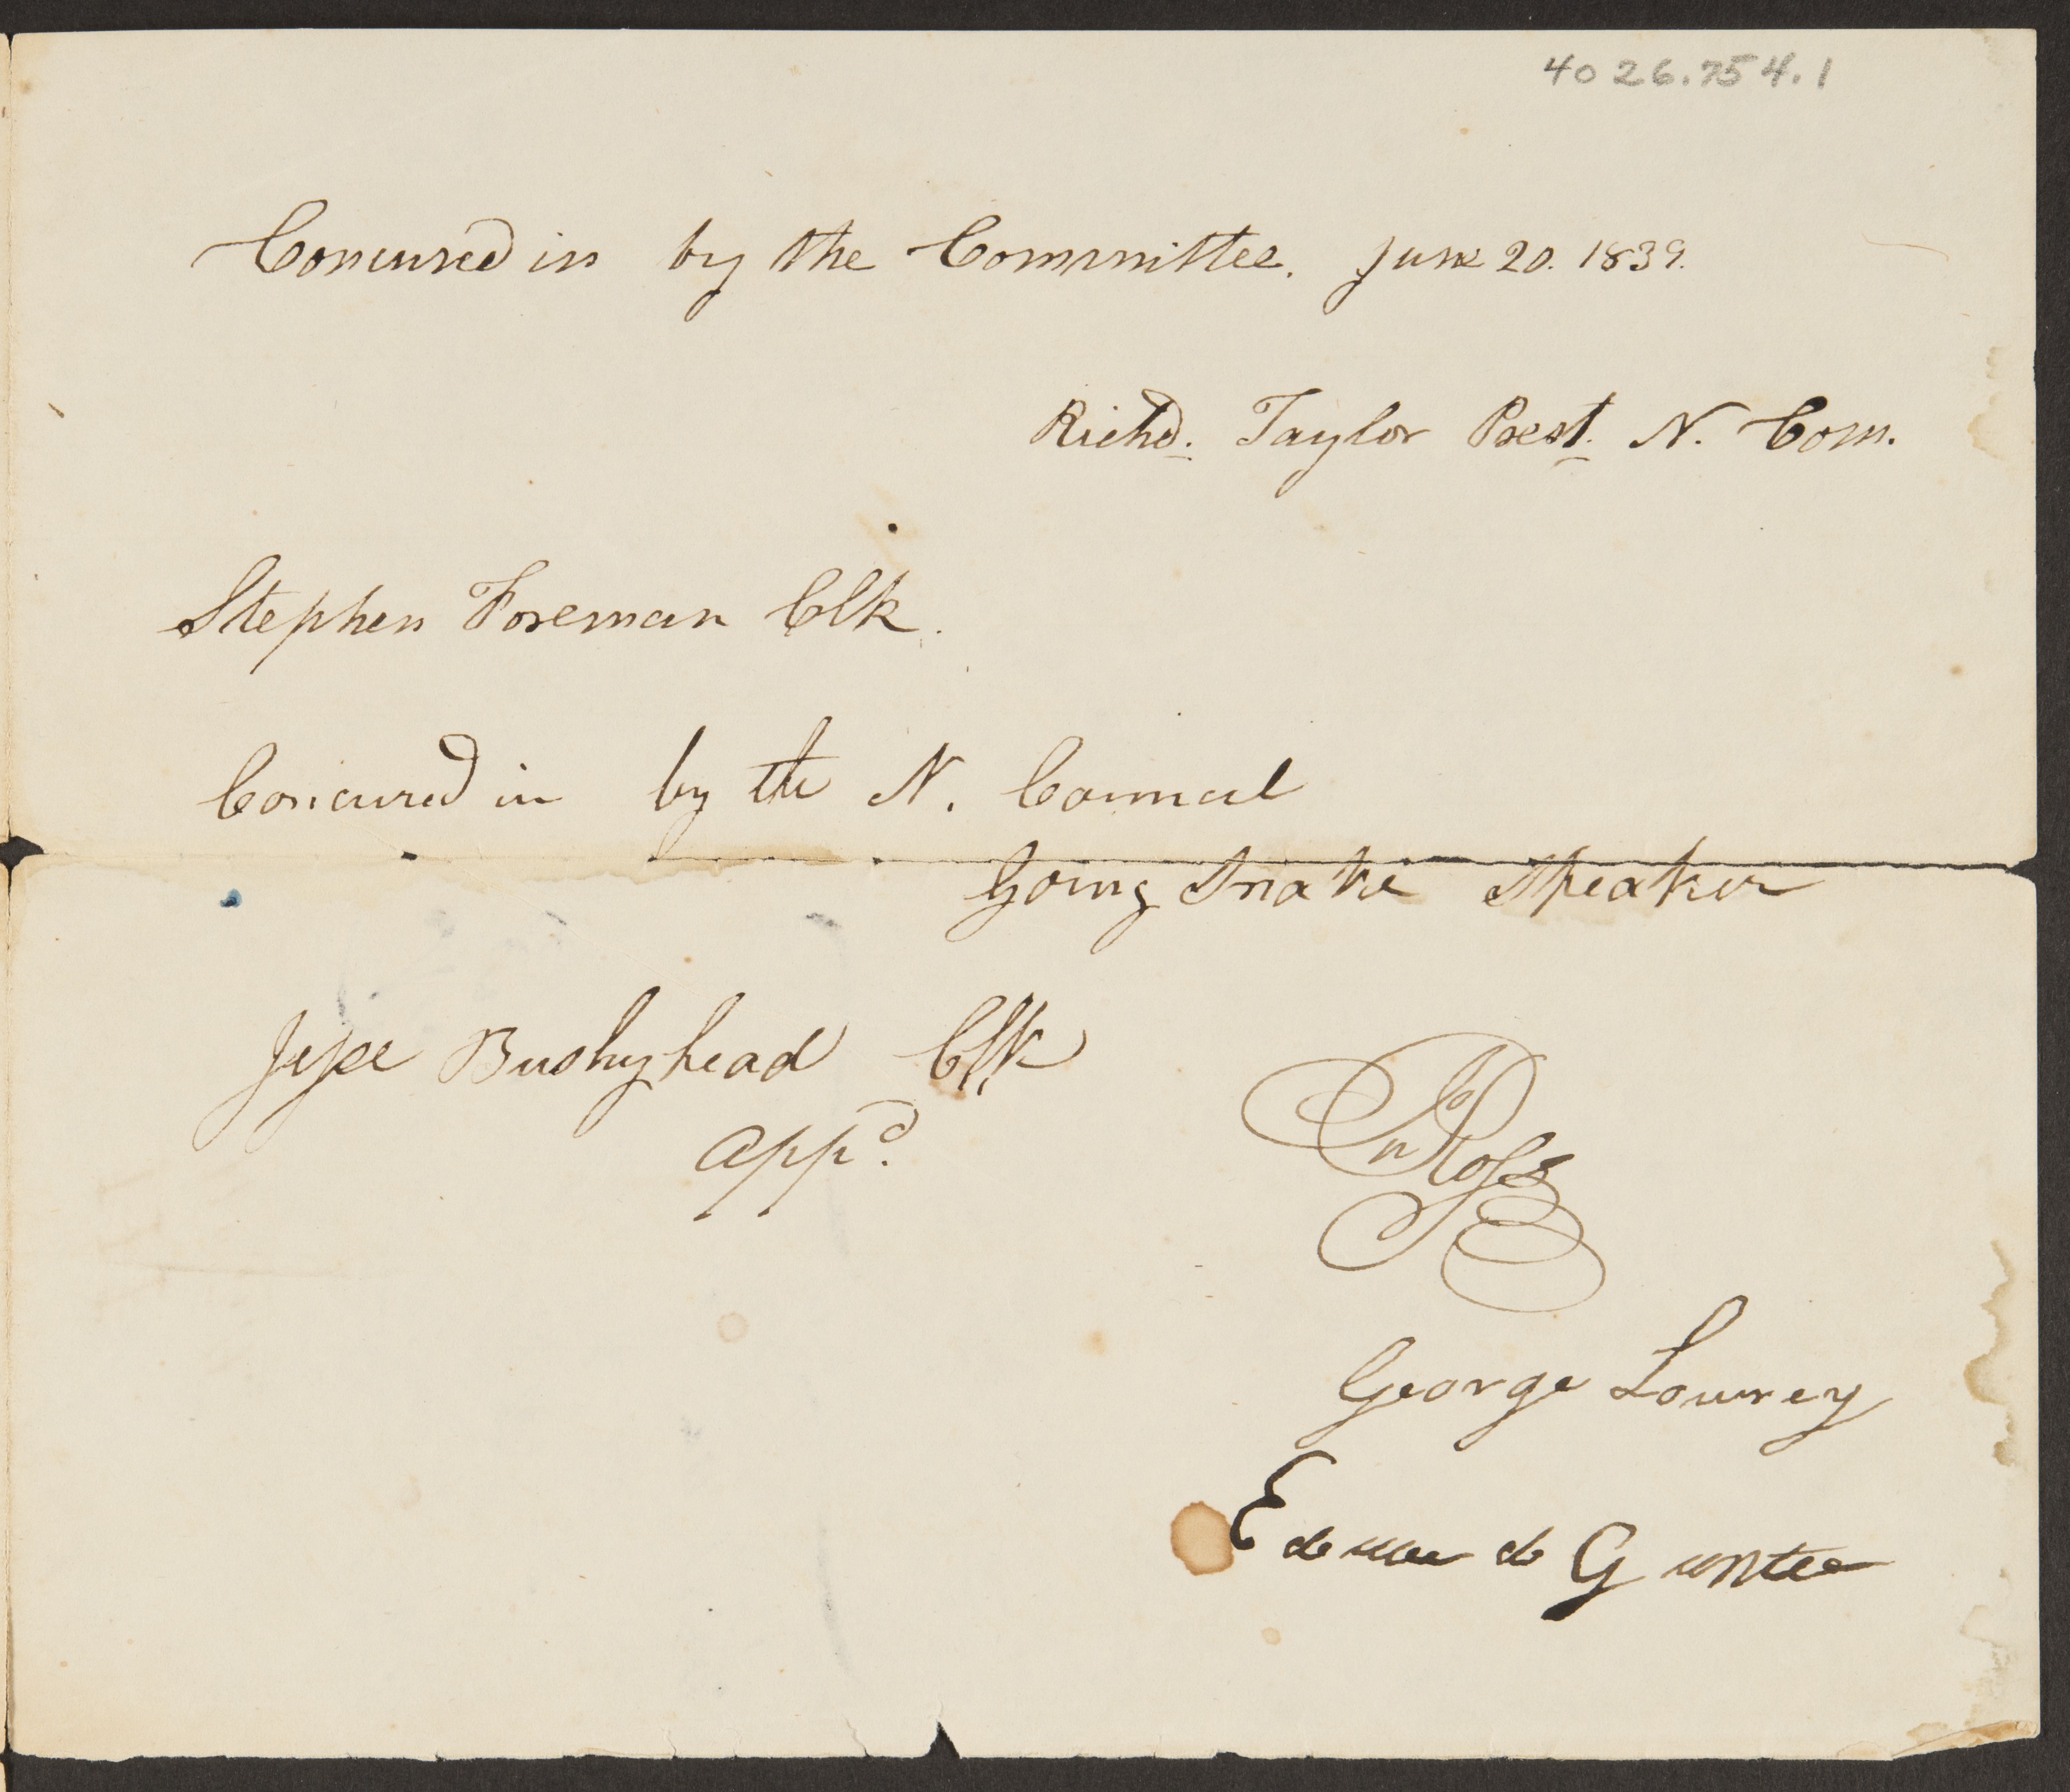 4026.754.1
Concured in by the Committee. June 20. 1839.
Richd. Taylor Prest. N. Com.
Stephen Foreman Clk.
Concured in by the N. Council
Going Snake Speaker
Jesse Bushyhead Clk
Appd.
Jn Ross
George Lowrey
Edward Gunter